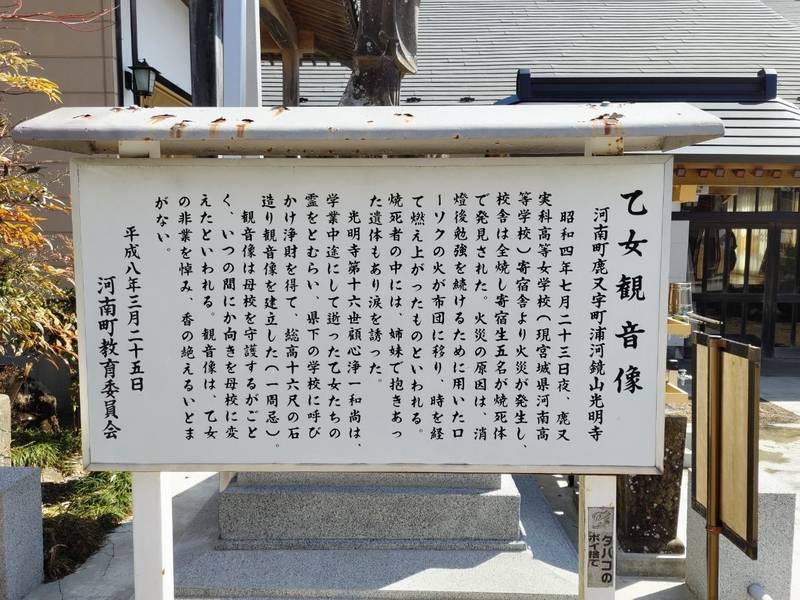 乙女観音像
河南町鹿又字町浦河鏡山光明寺
昭和四年七月二十三日夜、鹿又
実科高等女学校(現宮城県河南高
等学校)寄宿舎より火災が発生し、
校舎は全焼し寄宿生五名が焼死体
で発見された。火災の原因は、消
燈後勉強を続けるために用いたロ
ーソクの火が布団に移り、時を経
て燃え上がったものといわれる。
焼死者の中には、姉妹で抱きあっ
た遺体もあり涙を誘った。
光明寺第十六世顧心浄一和尚は、
学業中途にして逝った乙女たちの
霊をとむらい、県下の学校に呼び
かけ浄財を得て、総高十六尺の石
造り観音像を建立した(一周忌)。
観音像は母校を守護するがごと
く、いつの間にか向きを母校に変
えたといわれる。観音像は、乙女
の非業を悼み、香の絶えるいとま
がない。
平成八年三月二十五日
河南町教育委員会
タバコの
ポイ捨て